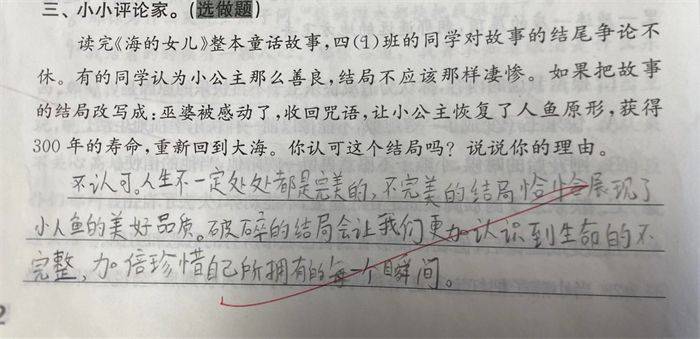 三、小小评论家。(选做题)
读完《海的女儿》整本童话故事,四(1)班的同学对故事的结尾争论不
休。有的同学认为小公主那么善良,结局不应该那样凄惨。如果把故事
的结局改写成:巫婆被感动了,收回咒语,让小公主恢复了人鱼原形,获得
300年的寿命,重新回到大海。你认可这个结局吗?说说你的理由。
不认可。人生不一定处处都是完美的,不完美的结局恰恰会展现了
小人鱼的美好品质。破碎的结局会让我们更加认识到生命的不
完整,加倍珍惜自己所拥有的每一个瞬间。
2